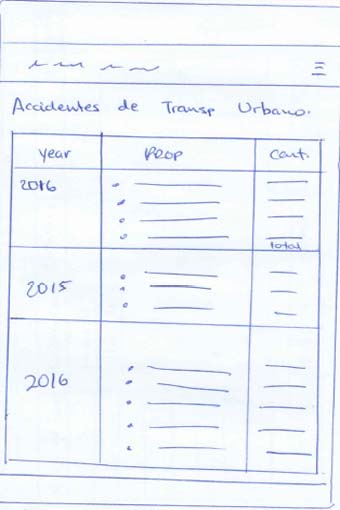 Accidentes de Transp Urbano.
year PROP cant.
2016
total
2015
2016